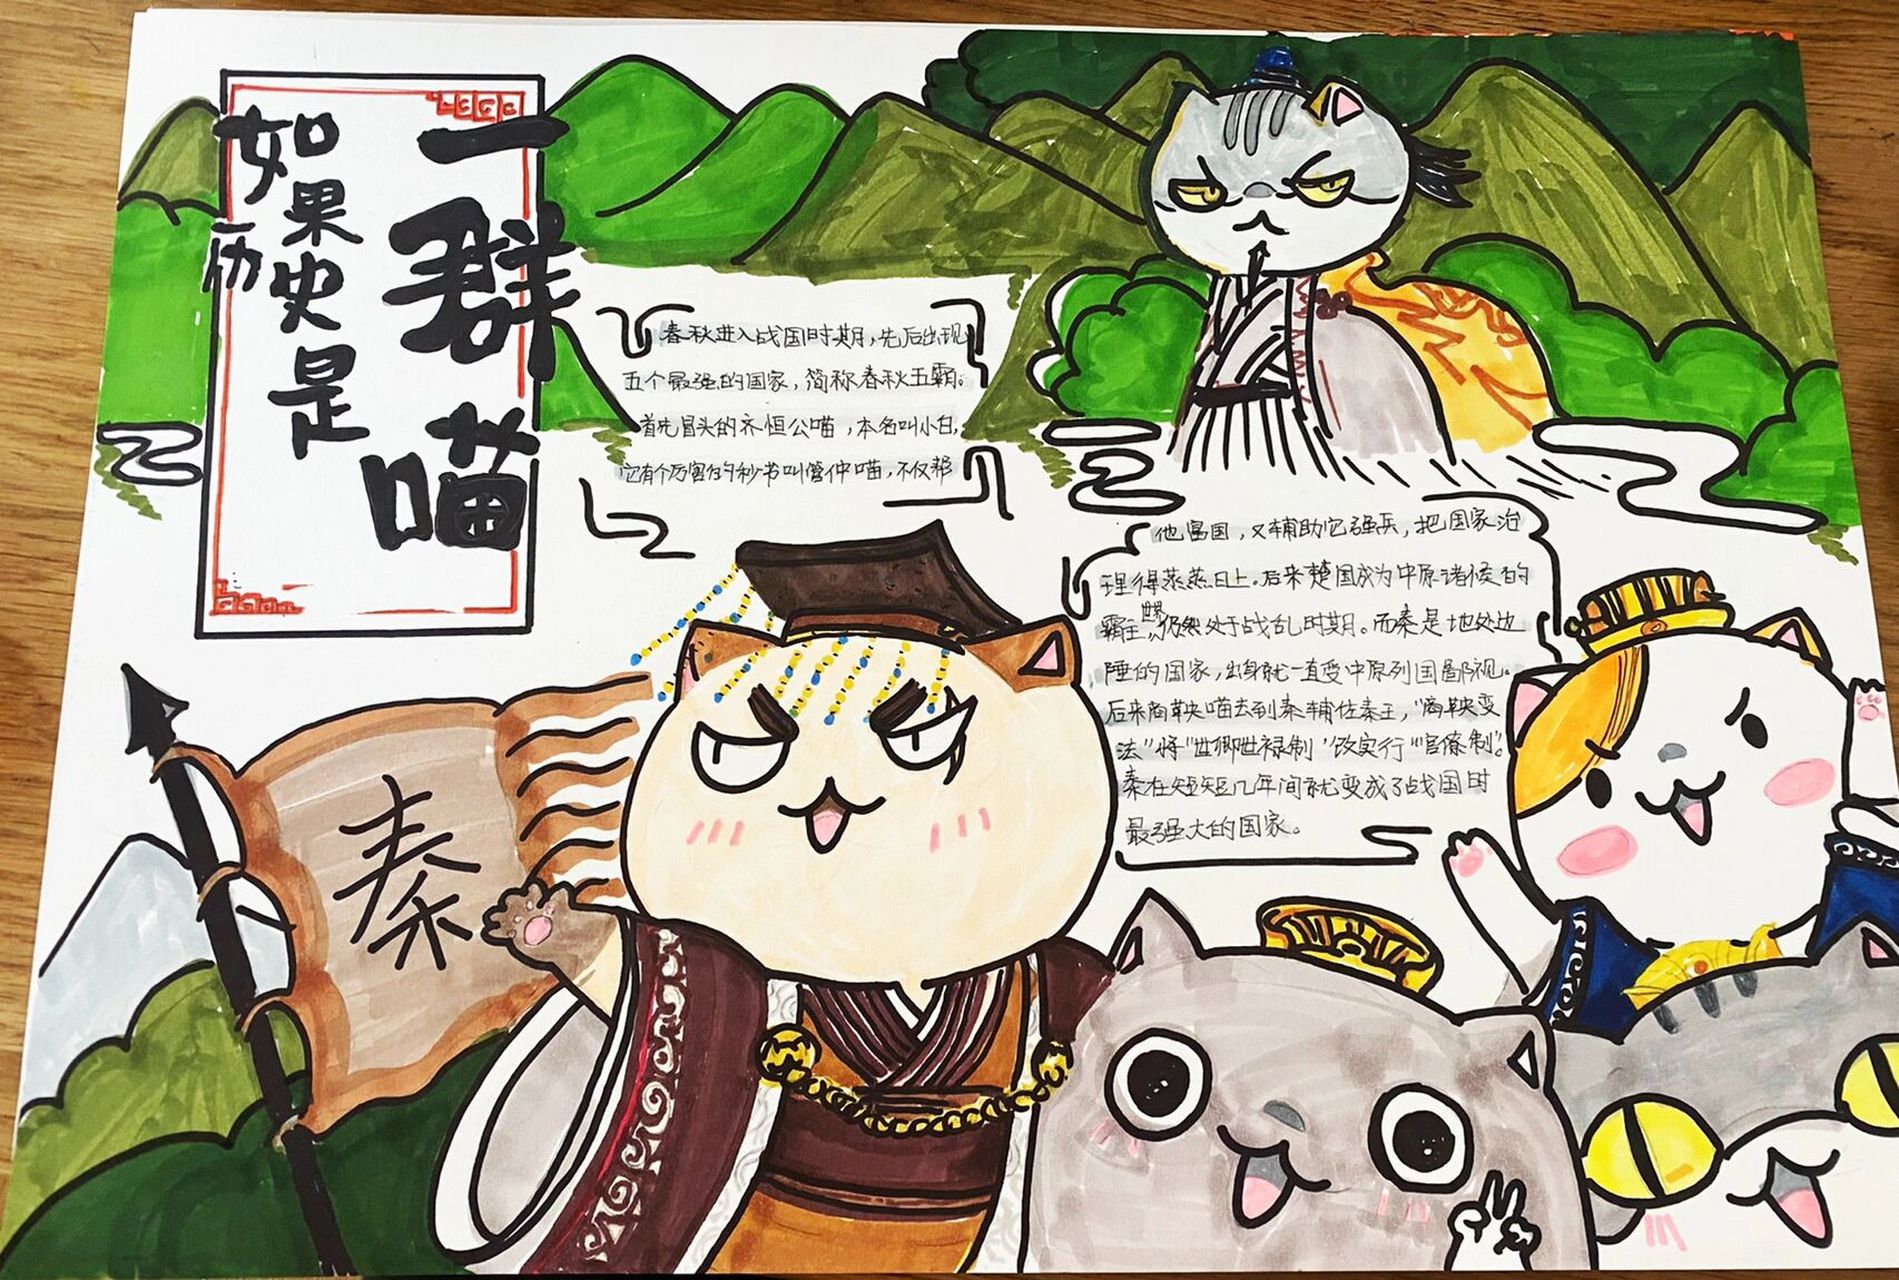 如果历史是
一群喵
春秋进入战国时期，先后出现
五个最强的国家，简称春秋五霸。
首先冒头的齐恒公喵，本名叫小白，
它有个厉害的秒书叫管仲喵，不仅帮
他富国，又辅助它强兵，把国家治
理得蒸蒸日上。后来楚国成为中原诸侯的
霸主，世界仍然处于战乱时期。而秦是地处边
陲的国家，出身就一直受中原列国鄙视。
后来商鞅喵去到秦辅佐秦王，“商鞅变
法”将“世卿世禄制”改实行“官僚制”。
秦在短短几年间就变成了战国时
最强大的国家。
秦